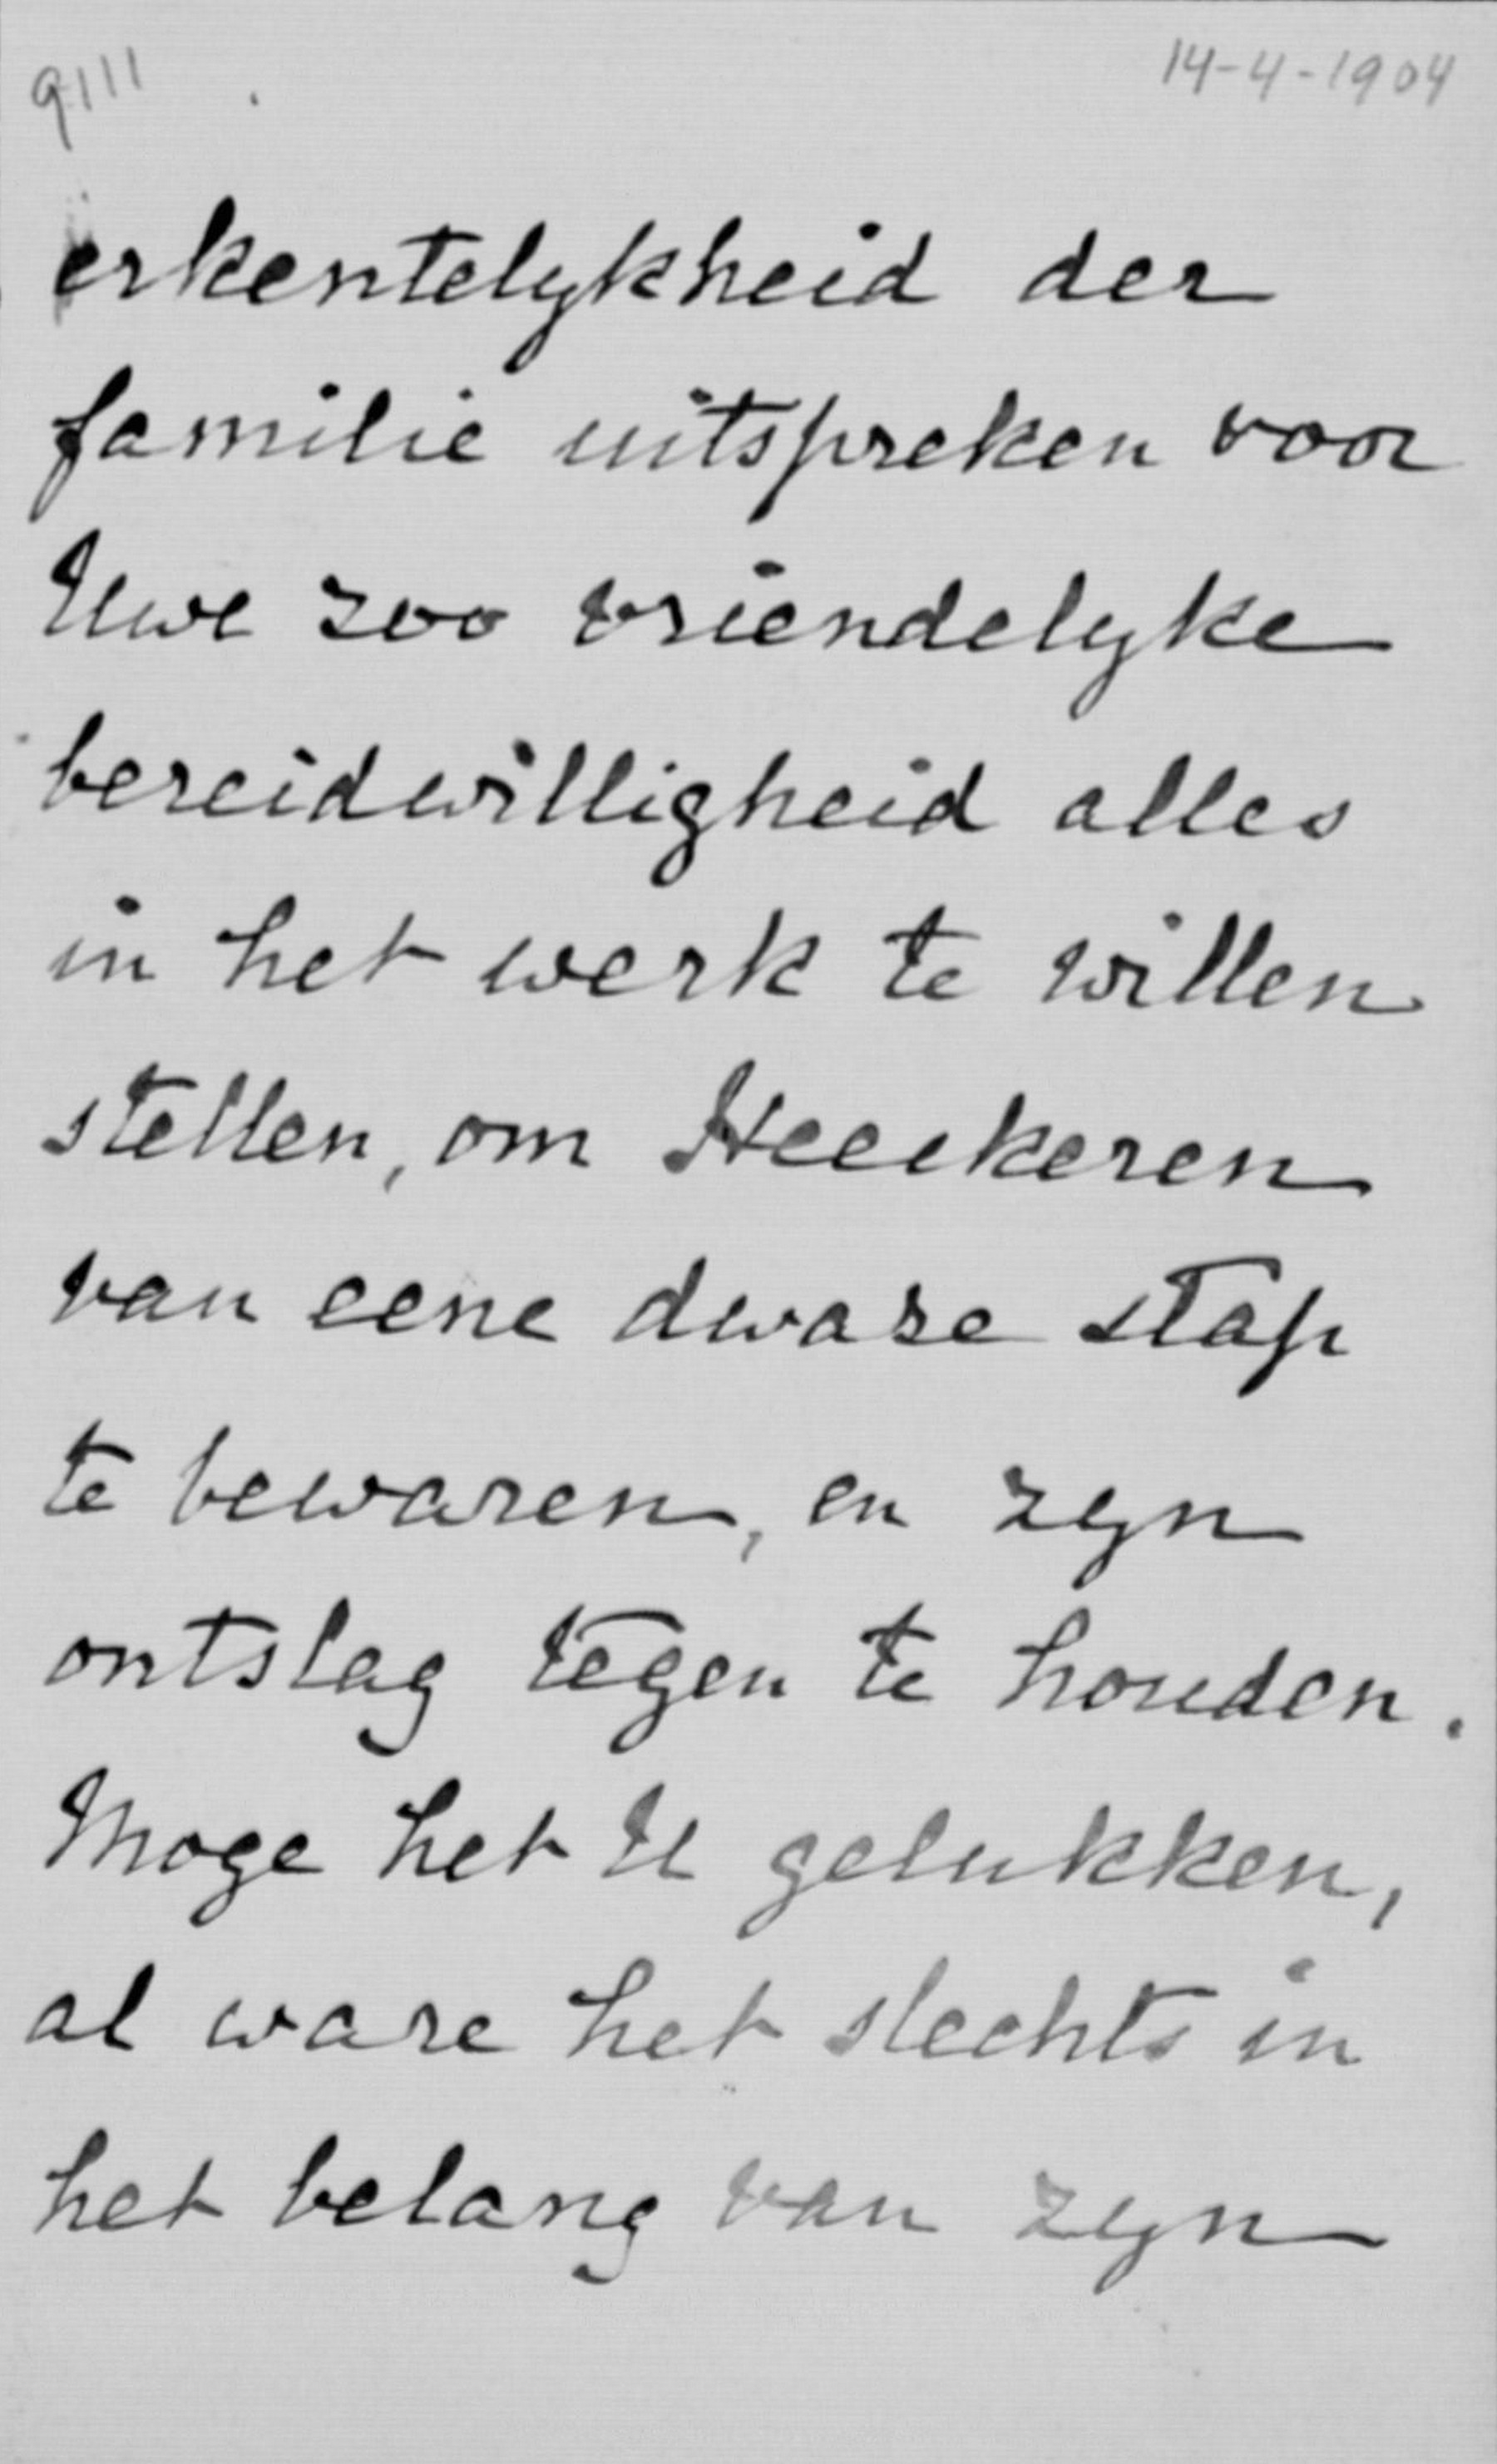 9111
14-4-1904
erkentelykheid der
familie uitspreken voor
Uwe zoo vriendelyke
bereidwilligheid alles
in het werk te willen
stellen, om Heeckeren
van eene dwaze stap
te bewaren, en zyn
ontslag tegen te houden.
Moge het U gelukken,
al ware het slechts in
het belang van zyn